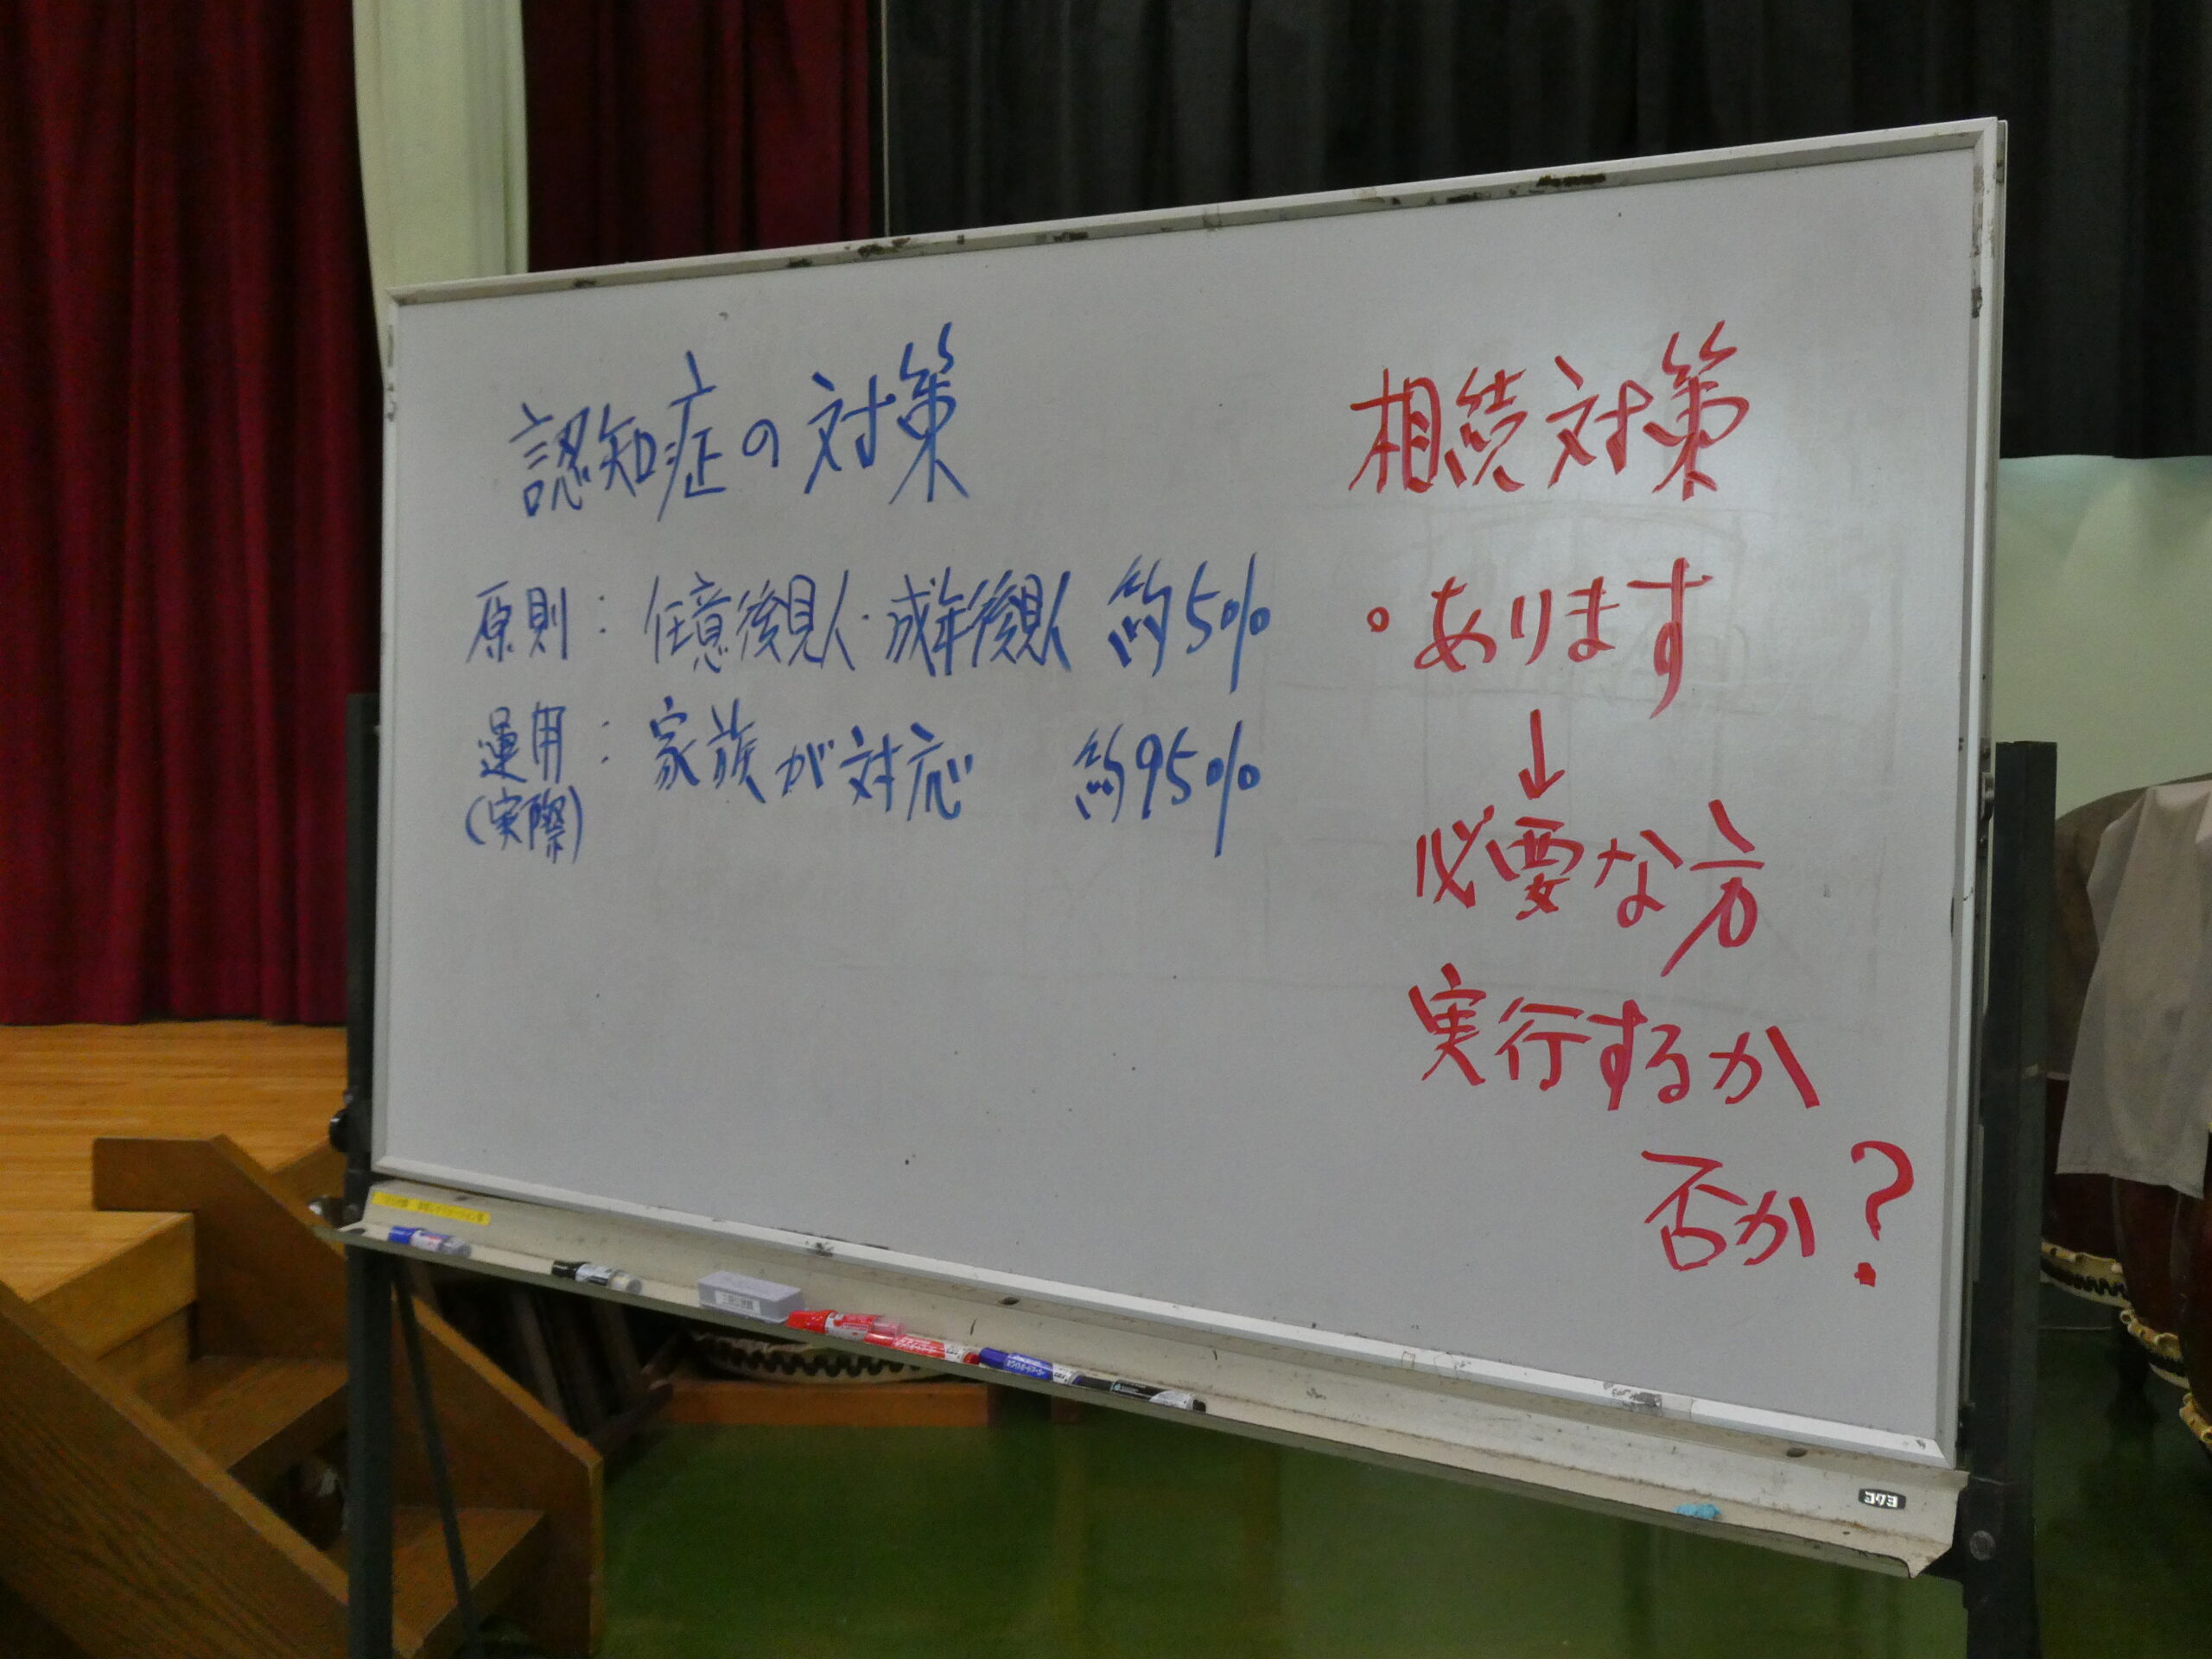 認知症の対策
原則：任意後見人・成年後見人 約5%
運用：家族が対応 約95%
(実際)
相続対策
。あります
↓
必要な方
実行するか
否か？
コクヨ